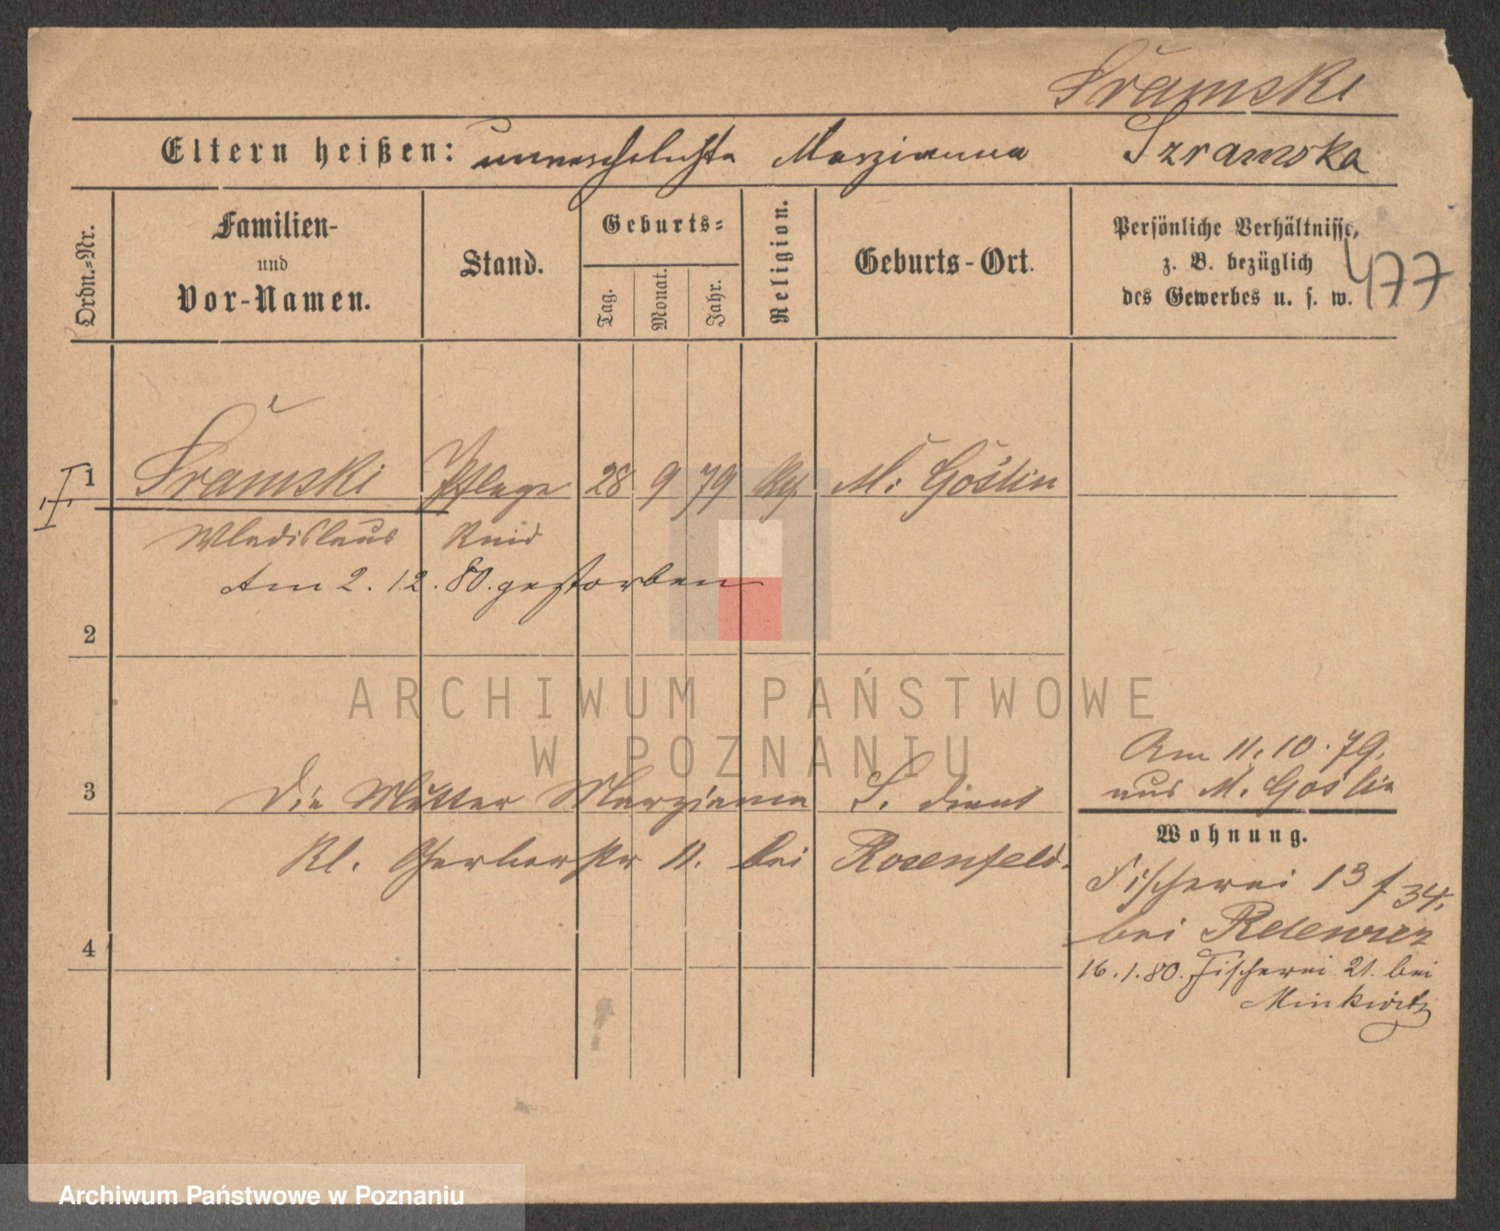 Šramski
Eltern heißen: unverehelichte Marzianna Szramska
Ordn.-Nr.
Familien-
und
Vor-Namen.
Stand.
Geburts-
Tag.
Monat.
Jahr.
Religion.
Geburts-Ort.
Persönliche Verhältnisse,
z. B. bezüglich
des Gewerbes u. s. w.
477
1 Šramski Pflege 28 9 79 M. Goślin
Wladislaus Kind
Am 2. 12. 80. gestorben
2
ARCHIWUM PAŃSTWOWE
W POZNANIU
Am 11. 10. 79.
aus M. Goślin
3 Die Mutter Marzianna S. dient
Kl. Gerberstr 11. bei Rosenfeld.
Wohnung.
Fischerei 13 f 34.
bei
4
16. 1. 80. Fischerei 21. bei
Minkwitz
Archiwum Państwowe w Poznaniu